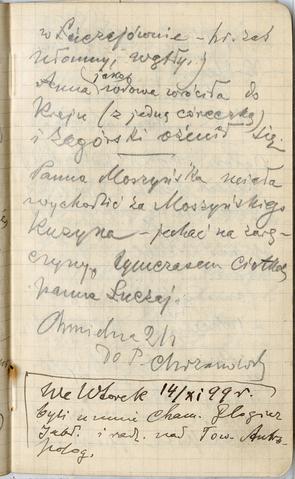 w Łuczajównie – hr. zaś
ułomny, wątły.)
Anna jako wdowa wróciła do
Kraju (z jedną córeczką)
i Zagórski ożenił się.
Panna Moszyńska miała
wychodzić za Moszyńskiego
Kuzyna – jechać na zarę-
czyny, tymczasem Ciotka
panna Łuczaj.
Chmielna 2/1
Do P. Chrzanowsk
We Wtorek 14/XI 99 r.
byli u mnie Cham. Glogier
Jabł. i radz. nad Tow. Antro-
polog.